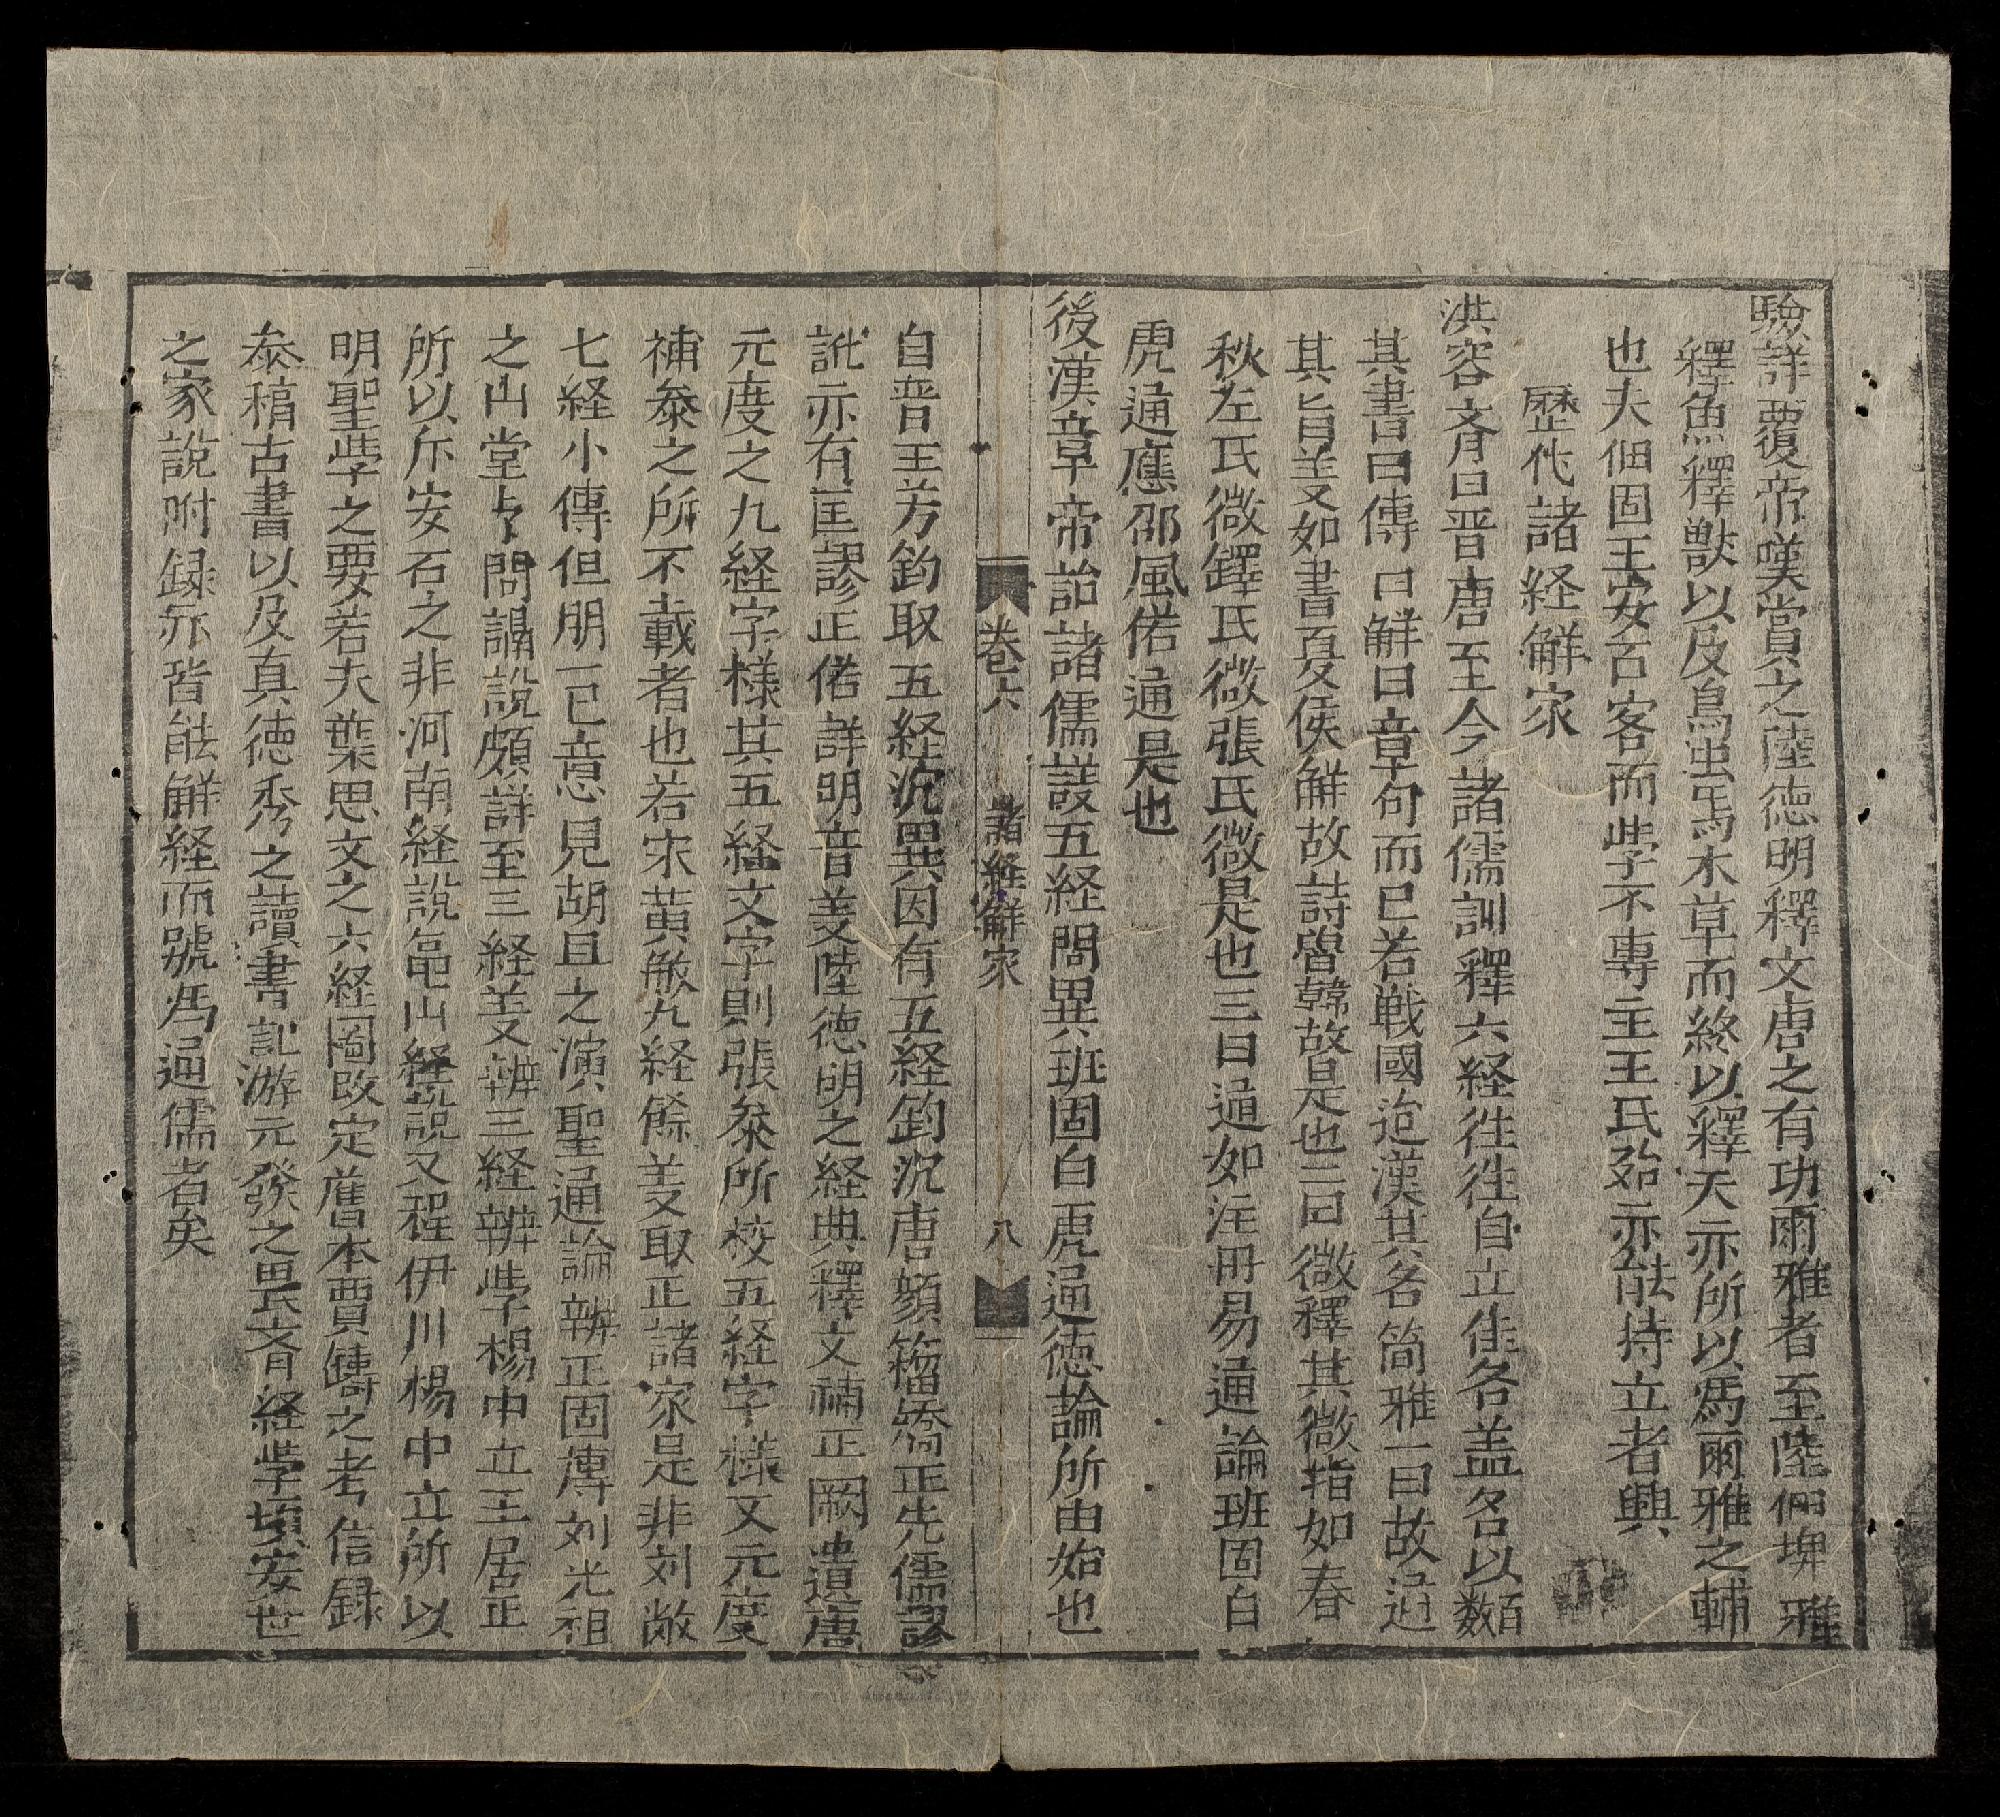 驗詳覆帝嘆賞之陸徳明釋文唐之有功爾雅者至陸佃埤雅
釋魚釋獸以及鳥虫馬木草而終以釋天亦所以為爾雅之輔
也夫佃固王安石客而斈不專主王氏殆亦能持立者興
歷代諸経觧家
洪容齐曰晋唐至今諸儒訓釋六経徃徃自立佳各盖名以数百
其書曰傳曰觧曰章句而已若戦國迨漢其名简雅一曰故通
其旨义如書夏侯觧故詩魯韓故皆是也二曰微釋其微指如春
秋左氏微鐸氏微張氏微是也三曰通如洼冊易通論班固白
虎通應邵風偌通是也
後漢章帝詔諸儒議五経問異班固白虎通徳論所由始也
卷六　諸経觧家　八
自晋王芳鈞取五経沉異因有五経鈞沉唐顔籀矯正先儒謬
訛亦有匡謬正偌詳明音义陸徳明之経典釋文補正闕遺唐
元度之九経字様其五経文字則張叅所校五経字様又元度
補叅之所不載者也若宋黄敏九経餘义取正諸家是非刘敞
七経小傳但朋一已意見胡旦之演聖通論辨正固傳刘光祖
之山堂占问講說頗詳至三経义辨三経辨斈楊中立王居正
所以斥安石之非河南経說龟山経說又程伊川楊中立所以
明聖斈之要若夫葉思文之六経圖改定舊本賈鑄之考信録
叅稽古書以及真徳秀之讀書記游元發之畏齐経斈項安世
之家說附録亦皆能觧経而號為通儒者矣